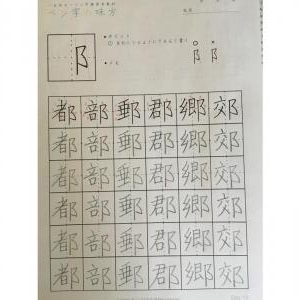 ペン字の味方
阝
都部郵郡郷郊
都部郵郡郷郊
都部郵郡郷郊
都部郵郡郷郊
都部郵郡郷郊
都部郵郡郷郊